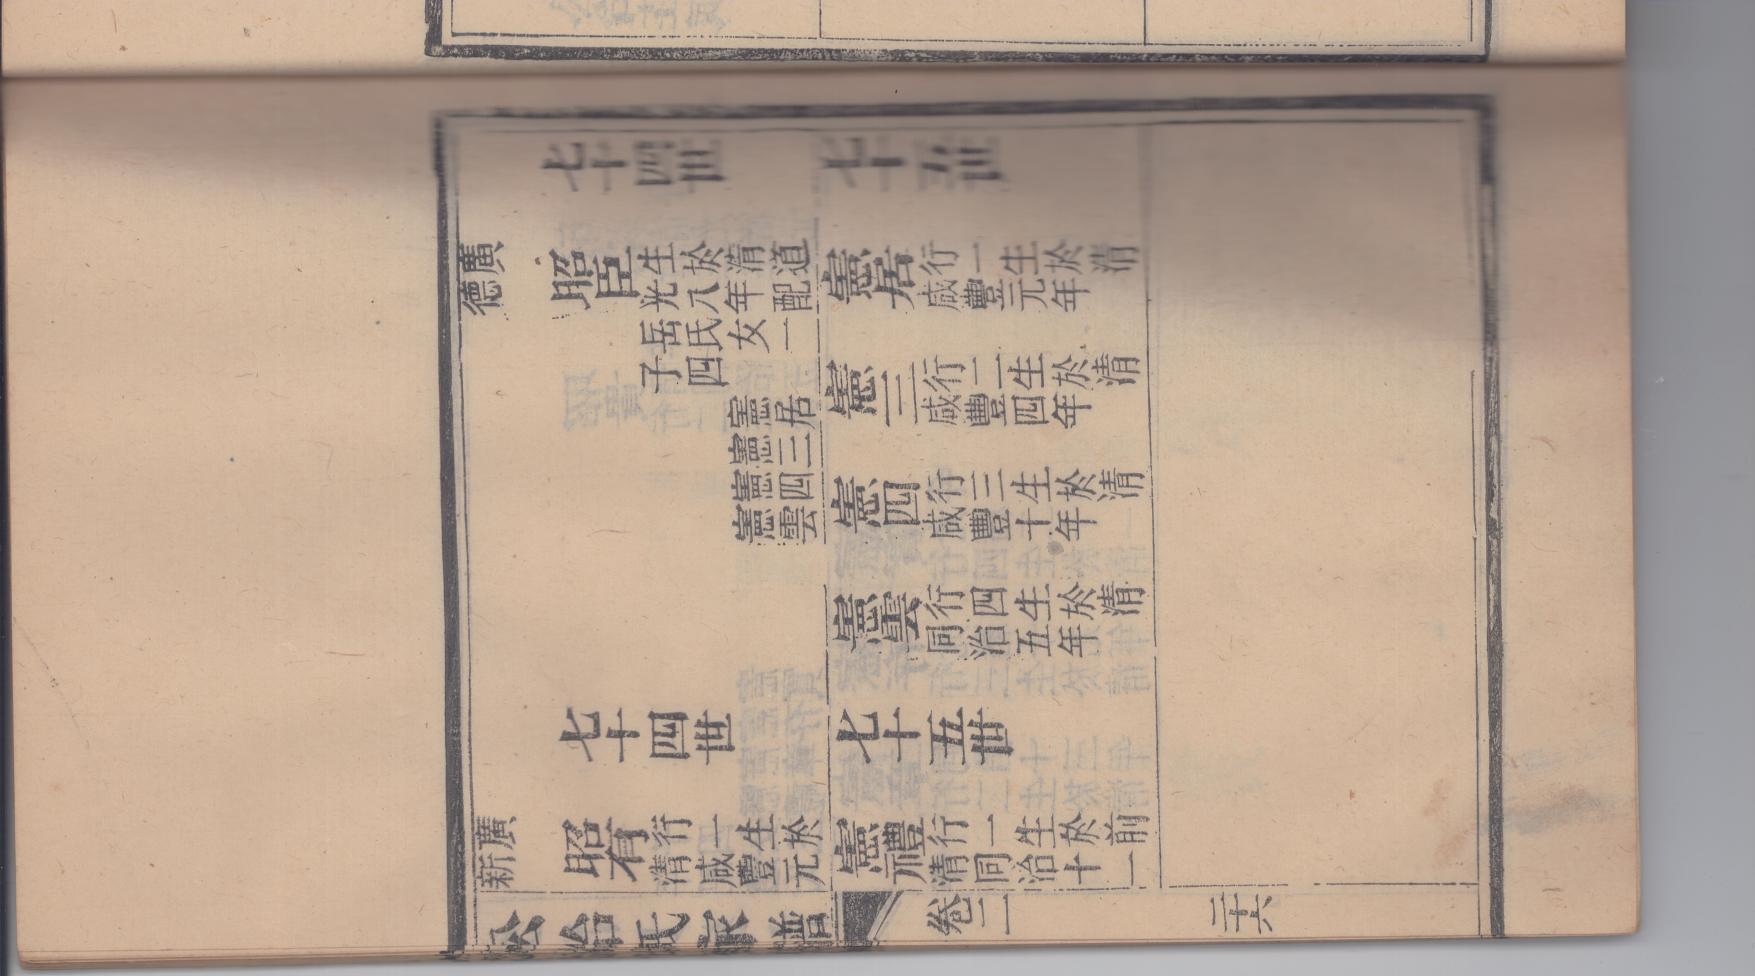 七十四世 七十五世
廣德 昭臣 生於清道 憲居 行一生於清
光八年配 咸豐元年
岳氏女一
子四 憲三 行二生於清
憲居 咸豐四年
憲三
憲四 憲四 行三生於清
憲雲 咸豐十年
憲雲 行四生於清
同治五年
七十四世 七十五世
廣新 昭有 行一生於 憲禮 行一生於前
清咸豐元 清同治十一
公冶氏家譜 卷二